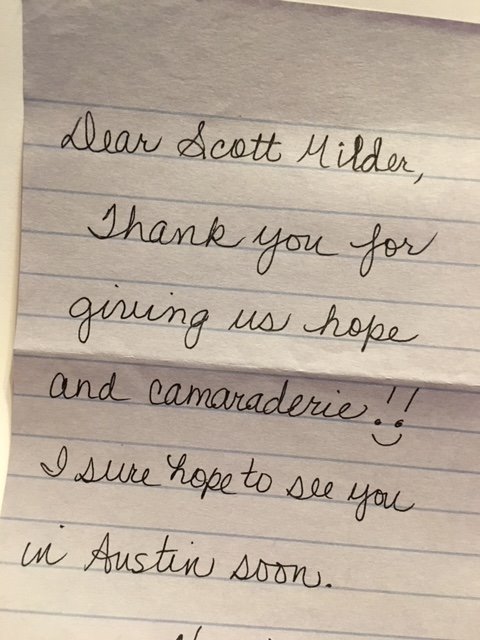 Dear Scott Milder,
Thank you for
giving us hope
and camaraderie!!
I sure hope to see you
in Austin soon.